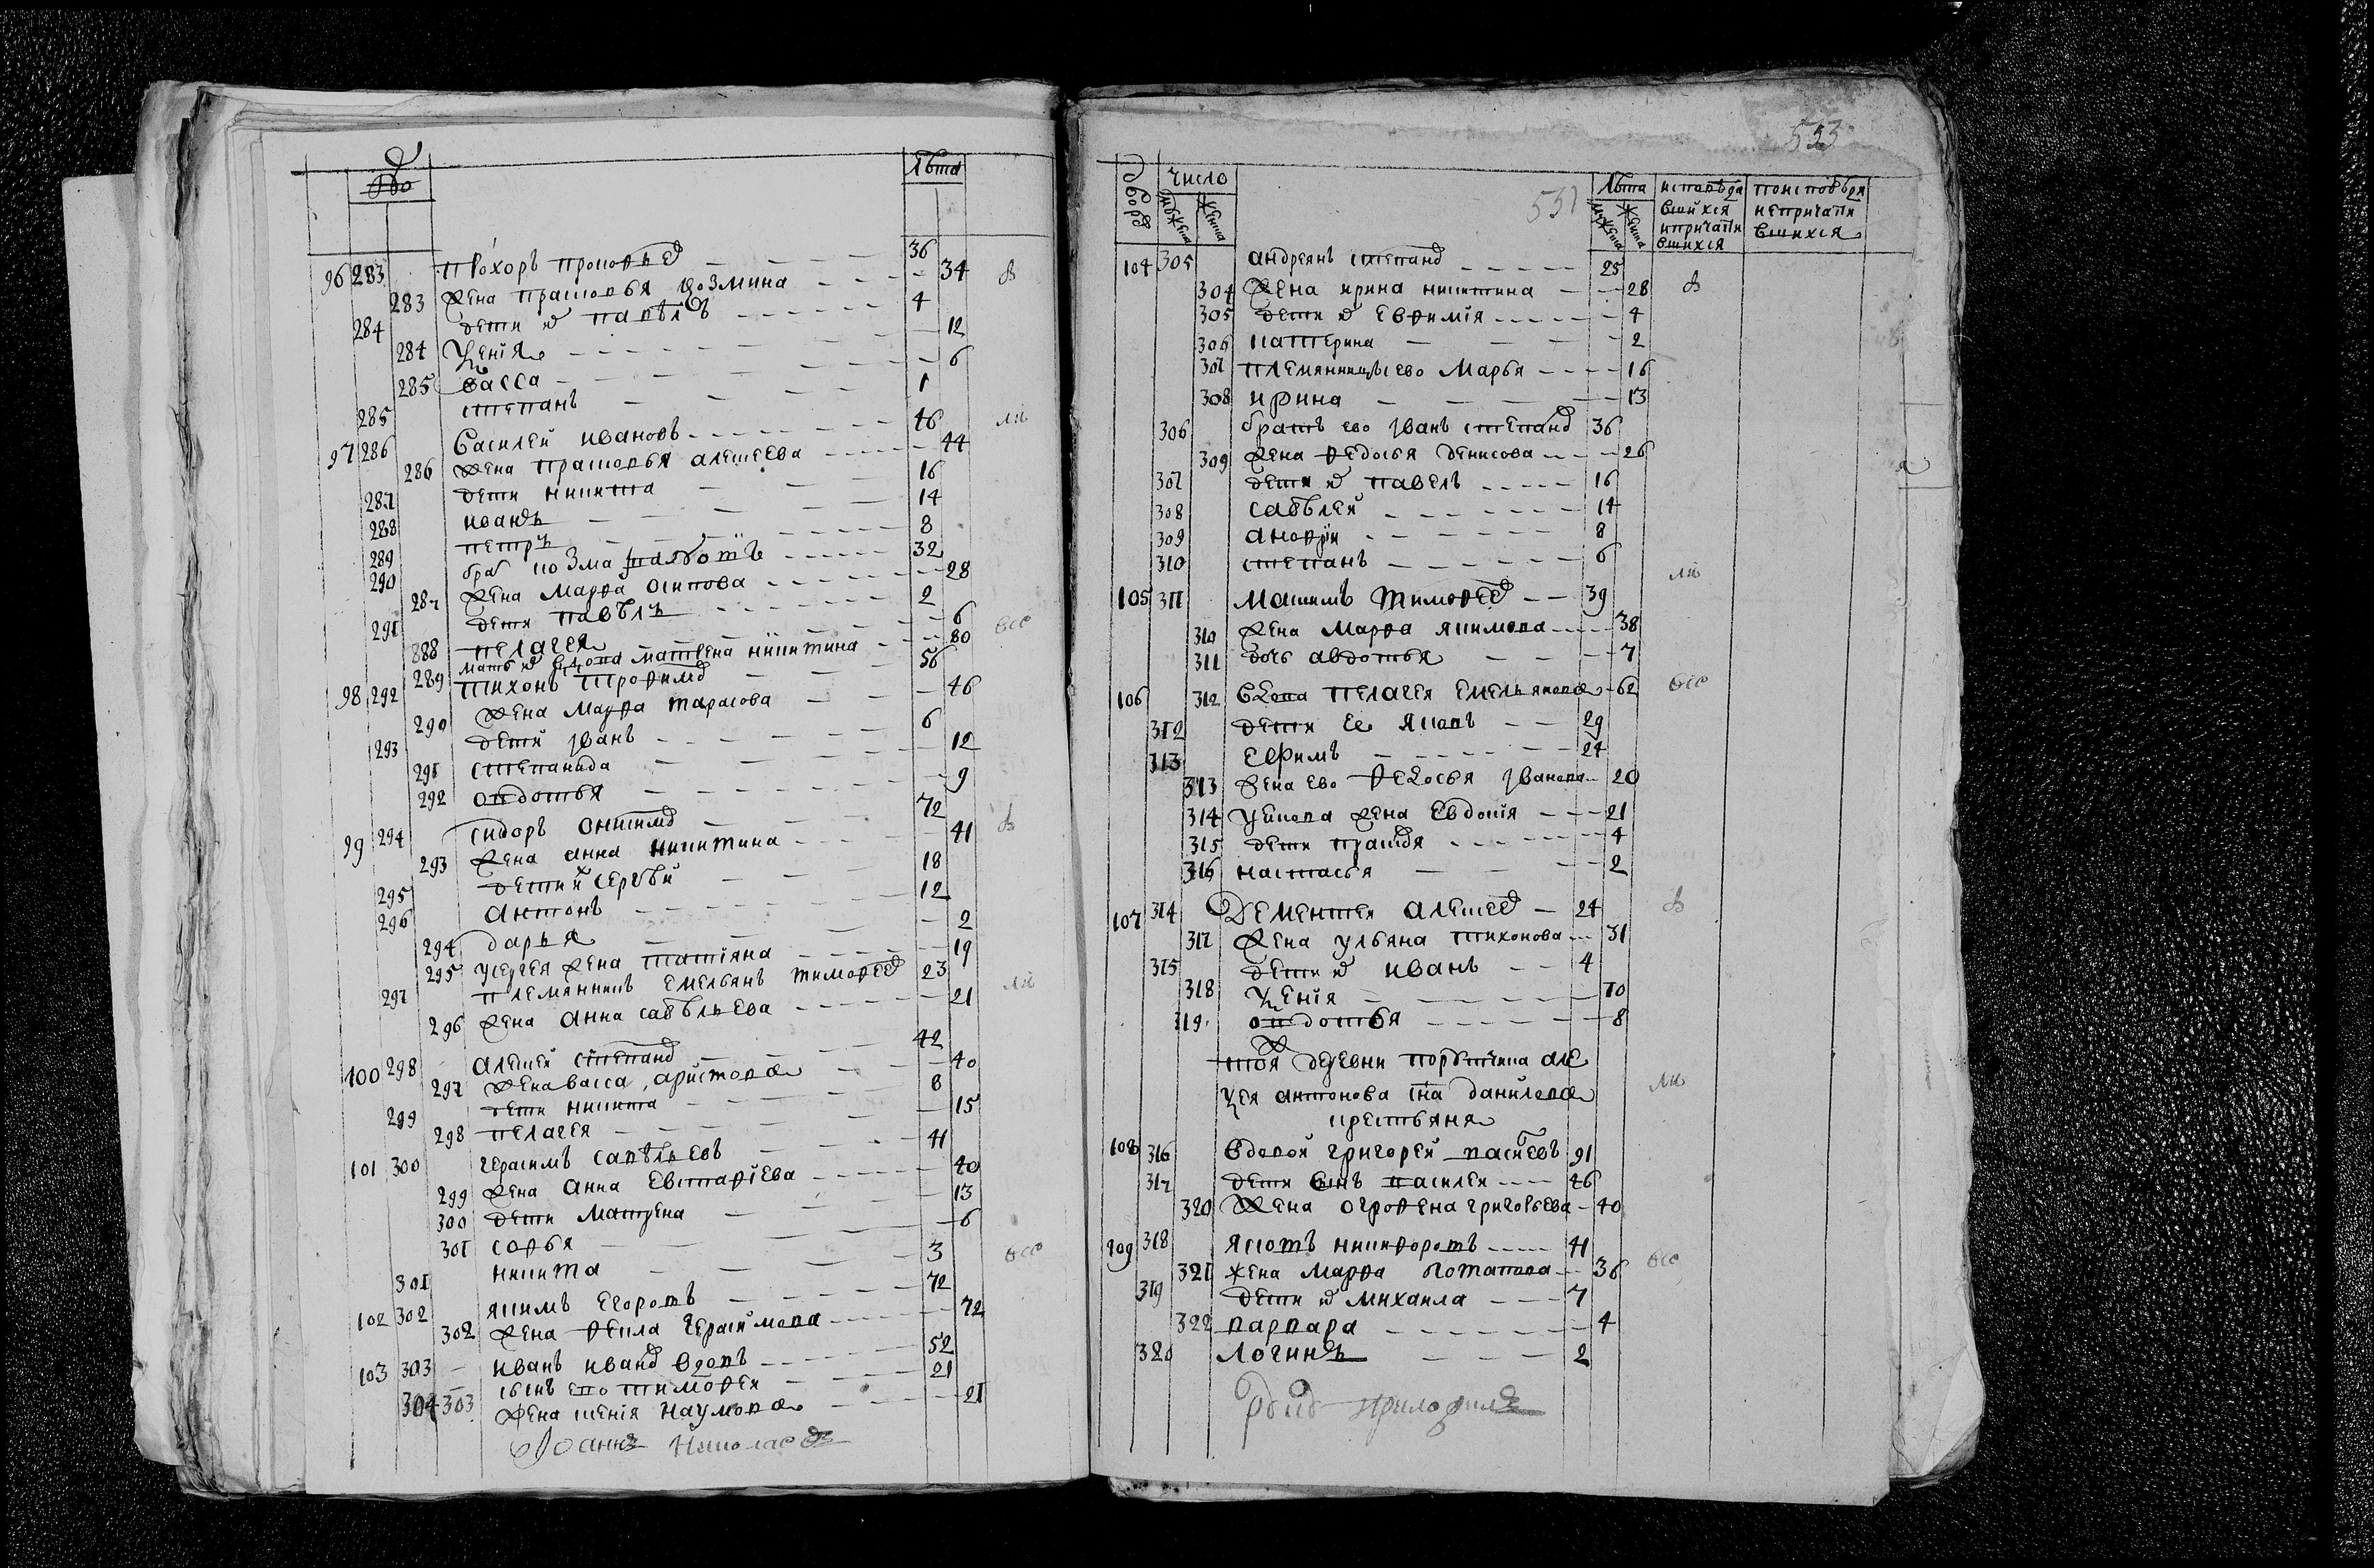 лѣта
36
96 283 Прохоръ прокофьев
34
283 жена прасковья козмина
284 дети их павѣлъ 4
284 Ксенія 12
285 васса 6
285 степанъ 1
97 286 Василей ивановъ 46
286 жена прасковья алексеева 44
287 дети никита 16
288 иванъ 14
289 петръ 8
290 козма 32
287 жена марфа осипова 28
291 дети павѣлъ 2
888 пелагея 6
289 мать их вдова матвена никитина 80
98 292 тихонъ трофимов 56
290 жена марфа тарасова 46
293 дети іванъ 6
291 степанида 12
292 овдотья 9
99 294 сидоръ 72
293 жена анна никитина 41
295 дети их сергѣй 18
296 антонъ 12
294 дарья 2
295 у сергея жена татіяна 19
297 племянникъ емельянъ тимофеев 23
296 жена анна савѣльева 21
100 298 алексей степанов 42
297 жена васса аристова 40
299 дети никита 8
298 пелагея 15
101 300 герасимъ савѣльевъ 41
299 жена анна евстафіева 40
300 дети матрена 13
301 софья 6
301 никита 3
102 302 якимъ егоровъ 72
302 жена фекла герасимова 72
103 303 иванъ иванов вдовъ 52
304 сынъ ево тимофей 21
303 жена ксенія наумова 21
533
531
дворѣ число лѣта исповѣда поисповѣдя
мужеска женска мужеска женска вшихся непричасти
ипричасти вшихся
вшихся
104 305 андреянъ степанов 25
304 жена ирина никитина 28
305 дети их евфимія 4
306 катерина 2
307 племянницы ево марья 16
308 ирина 13
306 братъ ево іванъ степанов 36
309 жена федосья денисова 26
307 дети их павелъ 16
308 савѣлей 14
309 8
310 степанъ 6
105 311 максимъ тимофеев 39
310 жена марфа якимова 38
311 дочь авдотья 7
106 312 вдова пелагея емельянова 62
312 дети ее яковъ 29
313 ефимъ 24
313 жена ево федосья іванова 20
314 у якова жена евдокія 21
315 дети 4
316 настасья 2
107 314 дементей алексеев 24
317 жена ульяна тихонова 31
315 дети их иванъ 4
318 Ксенія 10
319 овдотья 8
тоя ж деревни порутчика але
ксея антонова сна данилова
крестьяня
108 316 вдовой григорей 91
317 дети сынъ василей 46
320 жена огрофена григорьева 40
109 318 яковъ никифоровъ 41
321 жена марфа потапова 36
319 дети их михаила 7
322 варвара 4
320 логинъ 2
руку приложилъ